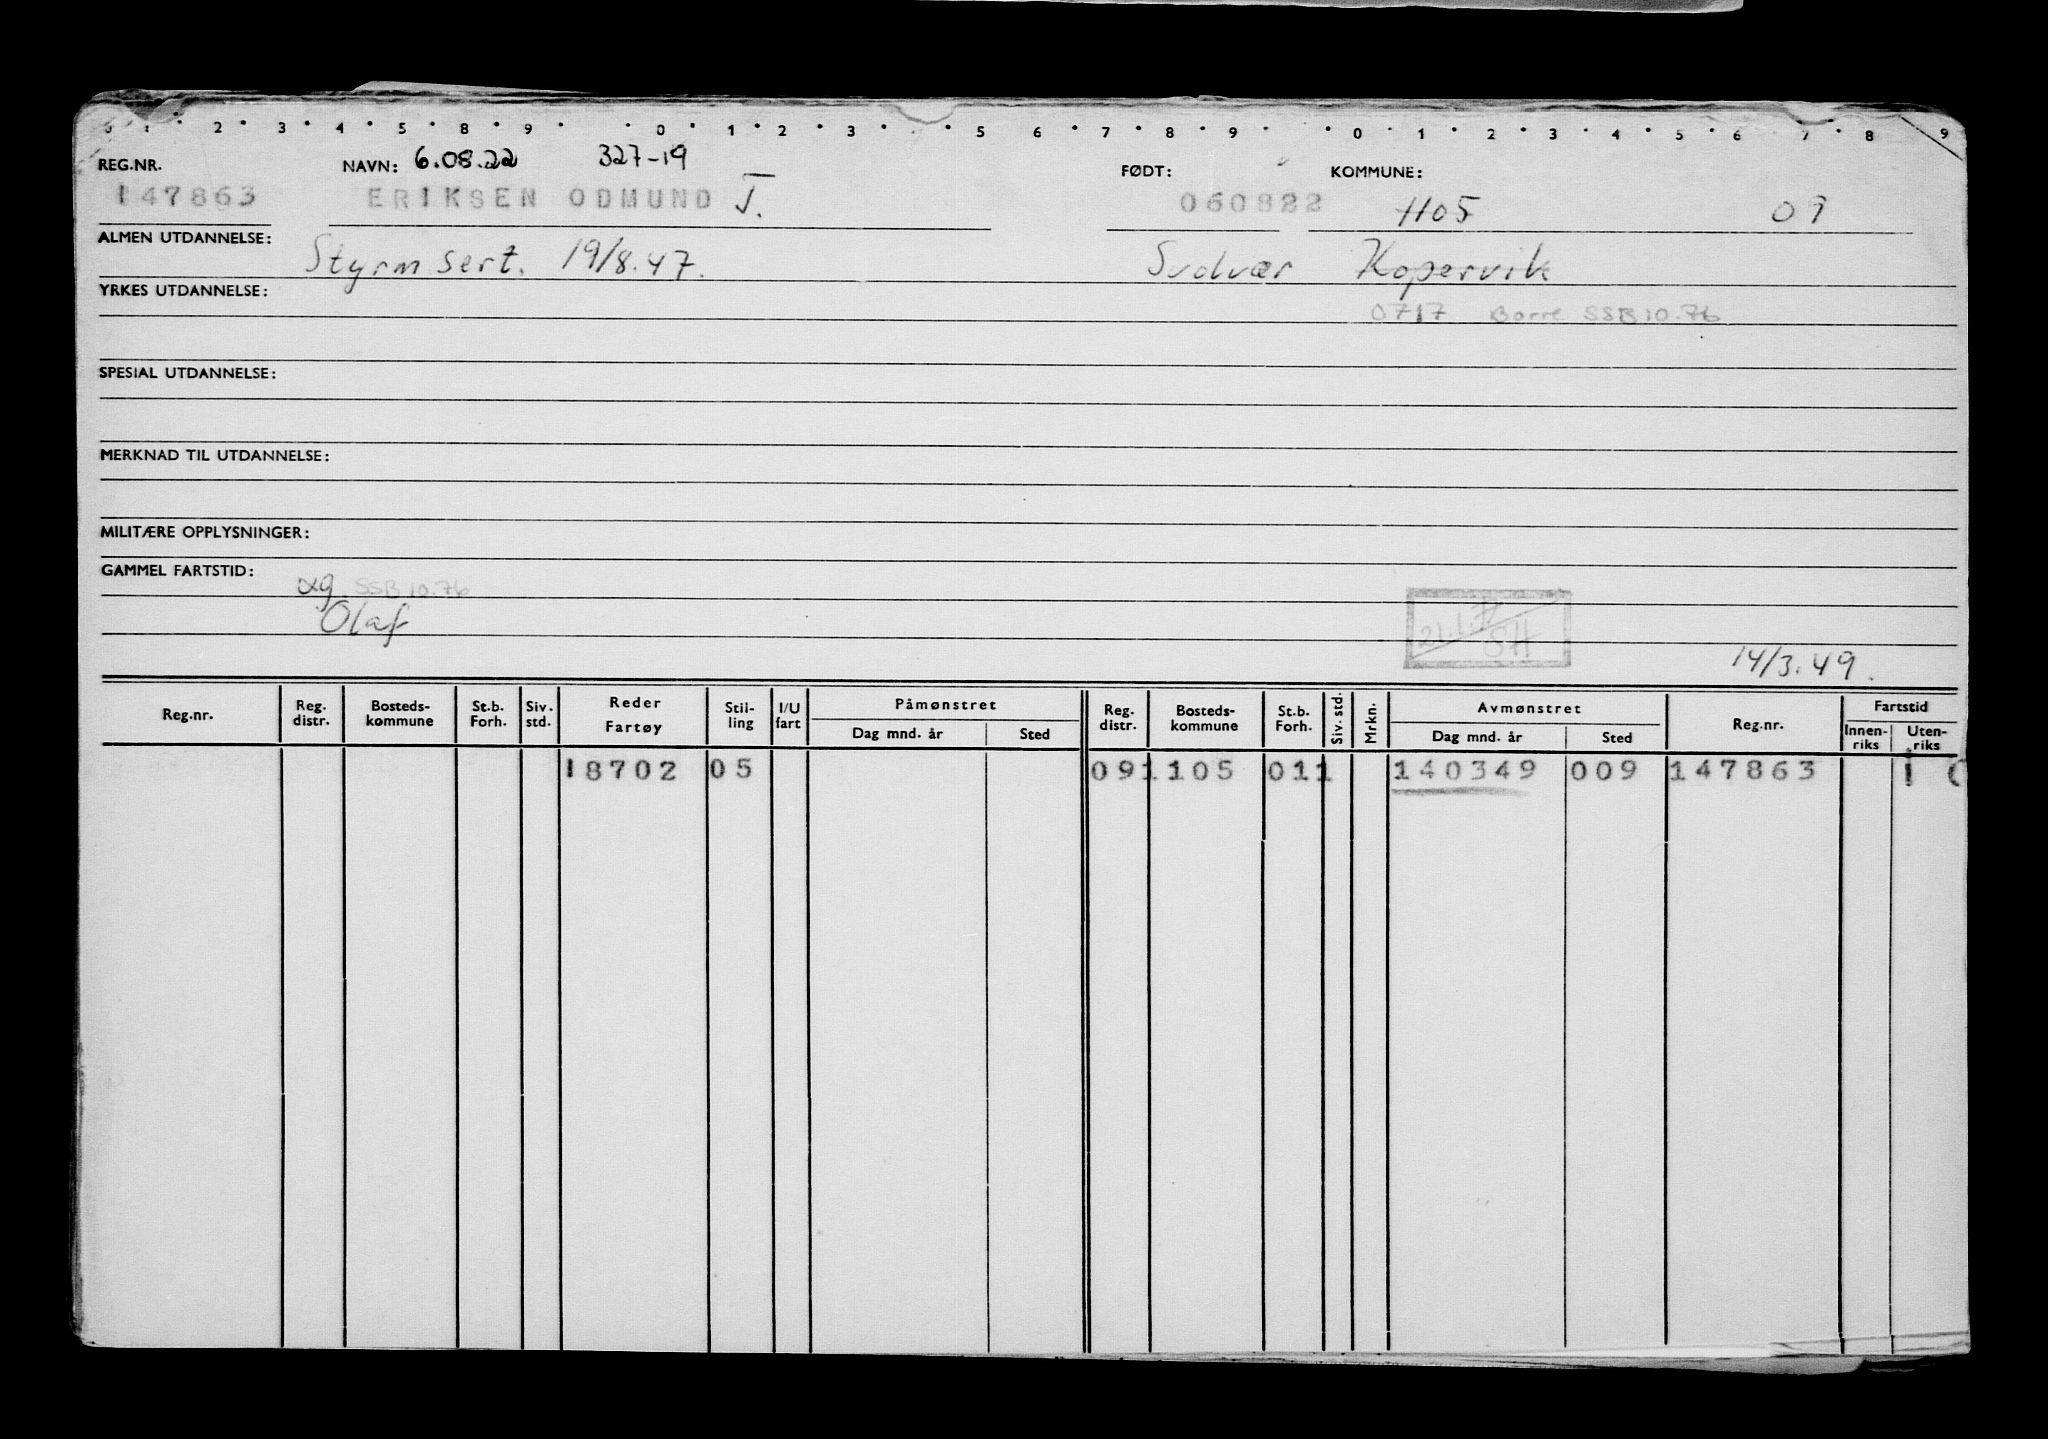 REG.NR. NAVN: 6.08.22 327-19 FØDT: KOMMUNE:
147863 ERIKSEN ODMUND J. 060822 1105 09
ALMEN UTDANNELSE: Styrm sert. 19/8.47. Svolvær Kopervik
YRKES UTDANNELSE:
0717 Borre SSB 10.76
SPESIAL UTDANNELSE:
MERKNAD TIL UTDANNELSE:
MILITÆRE OPPLYSNINGER:
GAMMEL FARTSTID:
xg SSB 10.76
Olaf
SH
14/3.49.
Reg.nr. Reg. distr. Bosteds- kommune St.b. Forh. Siv. std. Reder Fartøy Stil- ling I/U fart Påmønstret Dag mnd. år Sted Reg. distr. Bosteds- kommune St.b. Forh. Siv. std. Mrkn. Avmønstret Dag mnd. år Sted Reg.nr. Fartstid Innen- riks Uten- riks
18702 05 091105 011 140349 009 147863 1